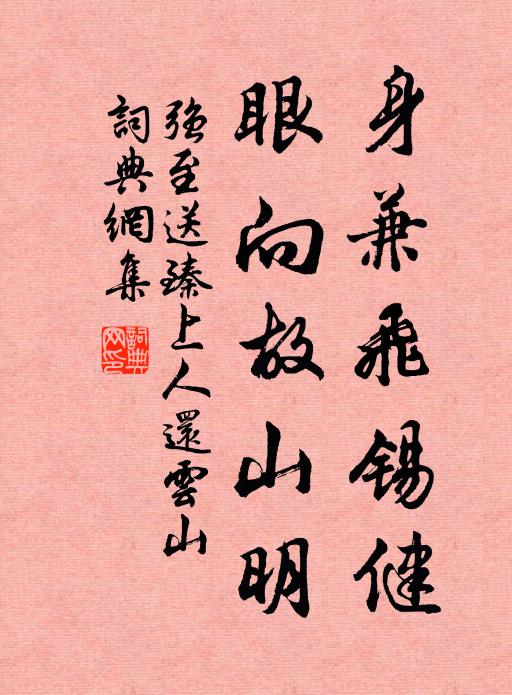 身兼飛錫健
眼向故山明
強至送臻上人還雲山
詞典網集
詞典網印